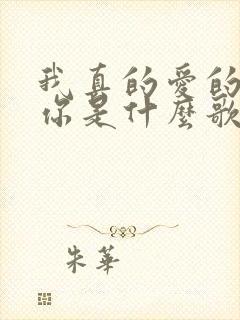 我真的愛的
你是什麼歌
朱華